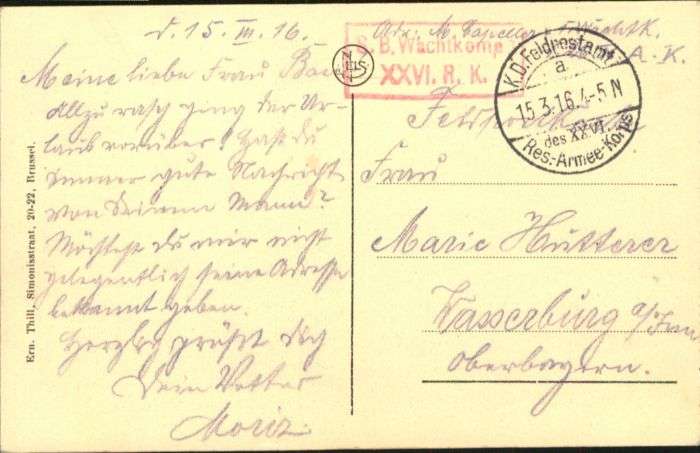 d. 15. III. 16.
Meine liebe Frau
Allzu rasch ging der Ur-
laub vorüber. Hast du
immer gute Nachricht
von Deinem Mann?
Möchtest du mir nicht
gelegentlich seine Adresse
bekannt geben.
Herzlich grüßt dich
Dein Vetter
Moriz.
Ern. Thill, Simonisstraat, 20-22, Brussel.
NELS
Abs: M. Capeller
S. B. Wachtkomp.
XXVI. R. K.
K.D. Feldpostamt
a.
15.3.16.4-5 N
des XXVI.
Res.-Armee-Korps
Feldpostkarte
Frau
Marie Hutterer
Wasserburg a/Inn
Oberbayern.